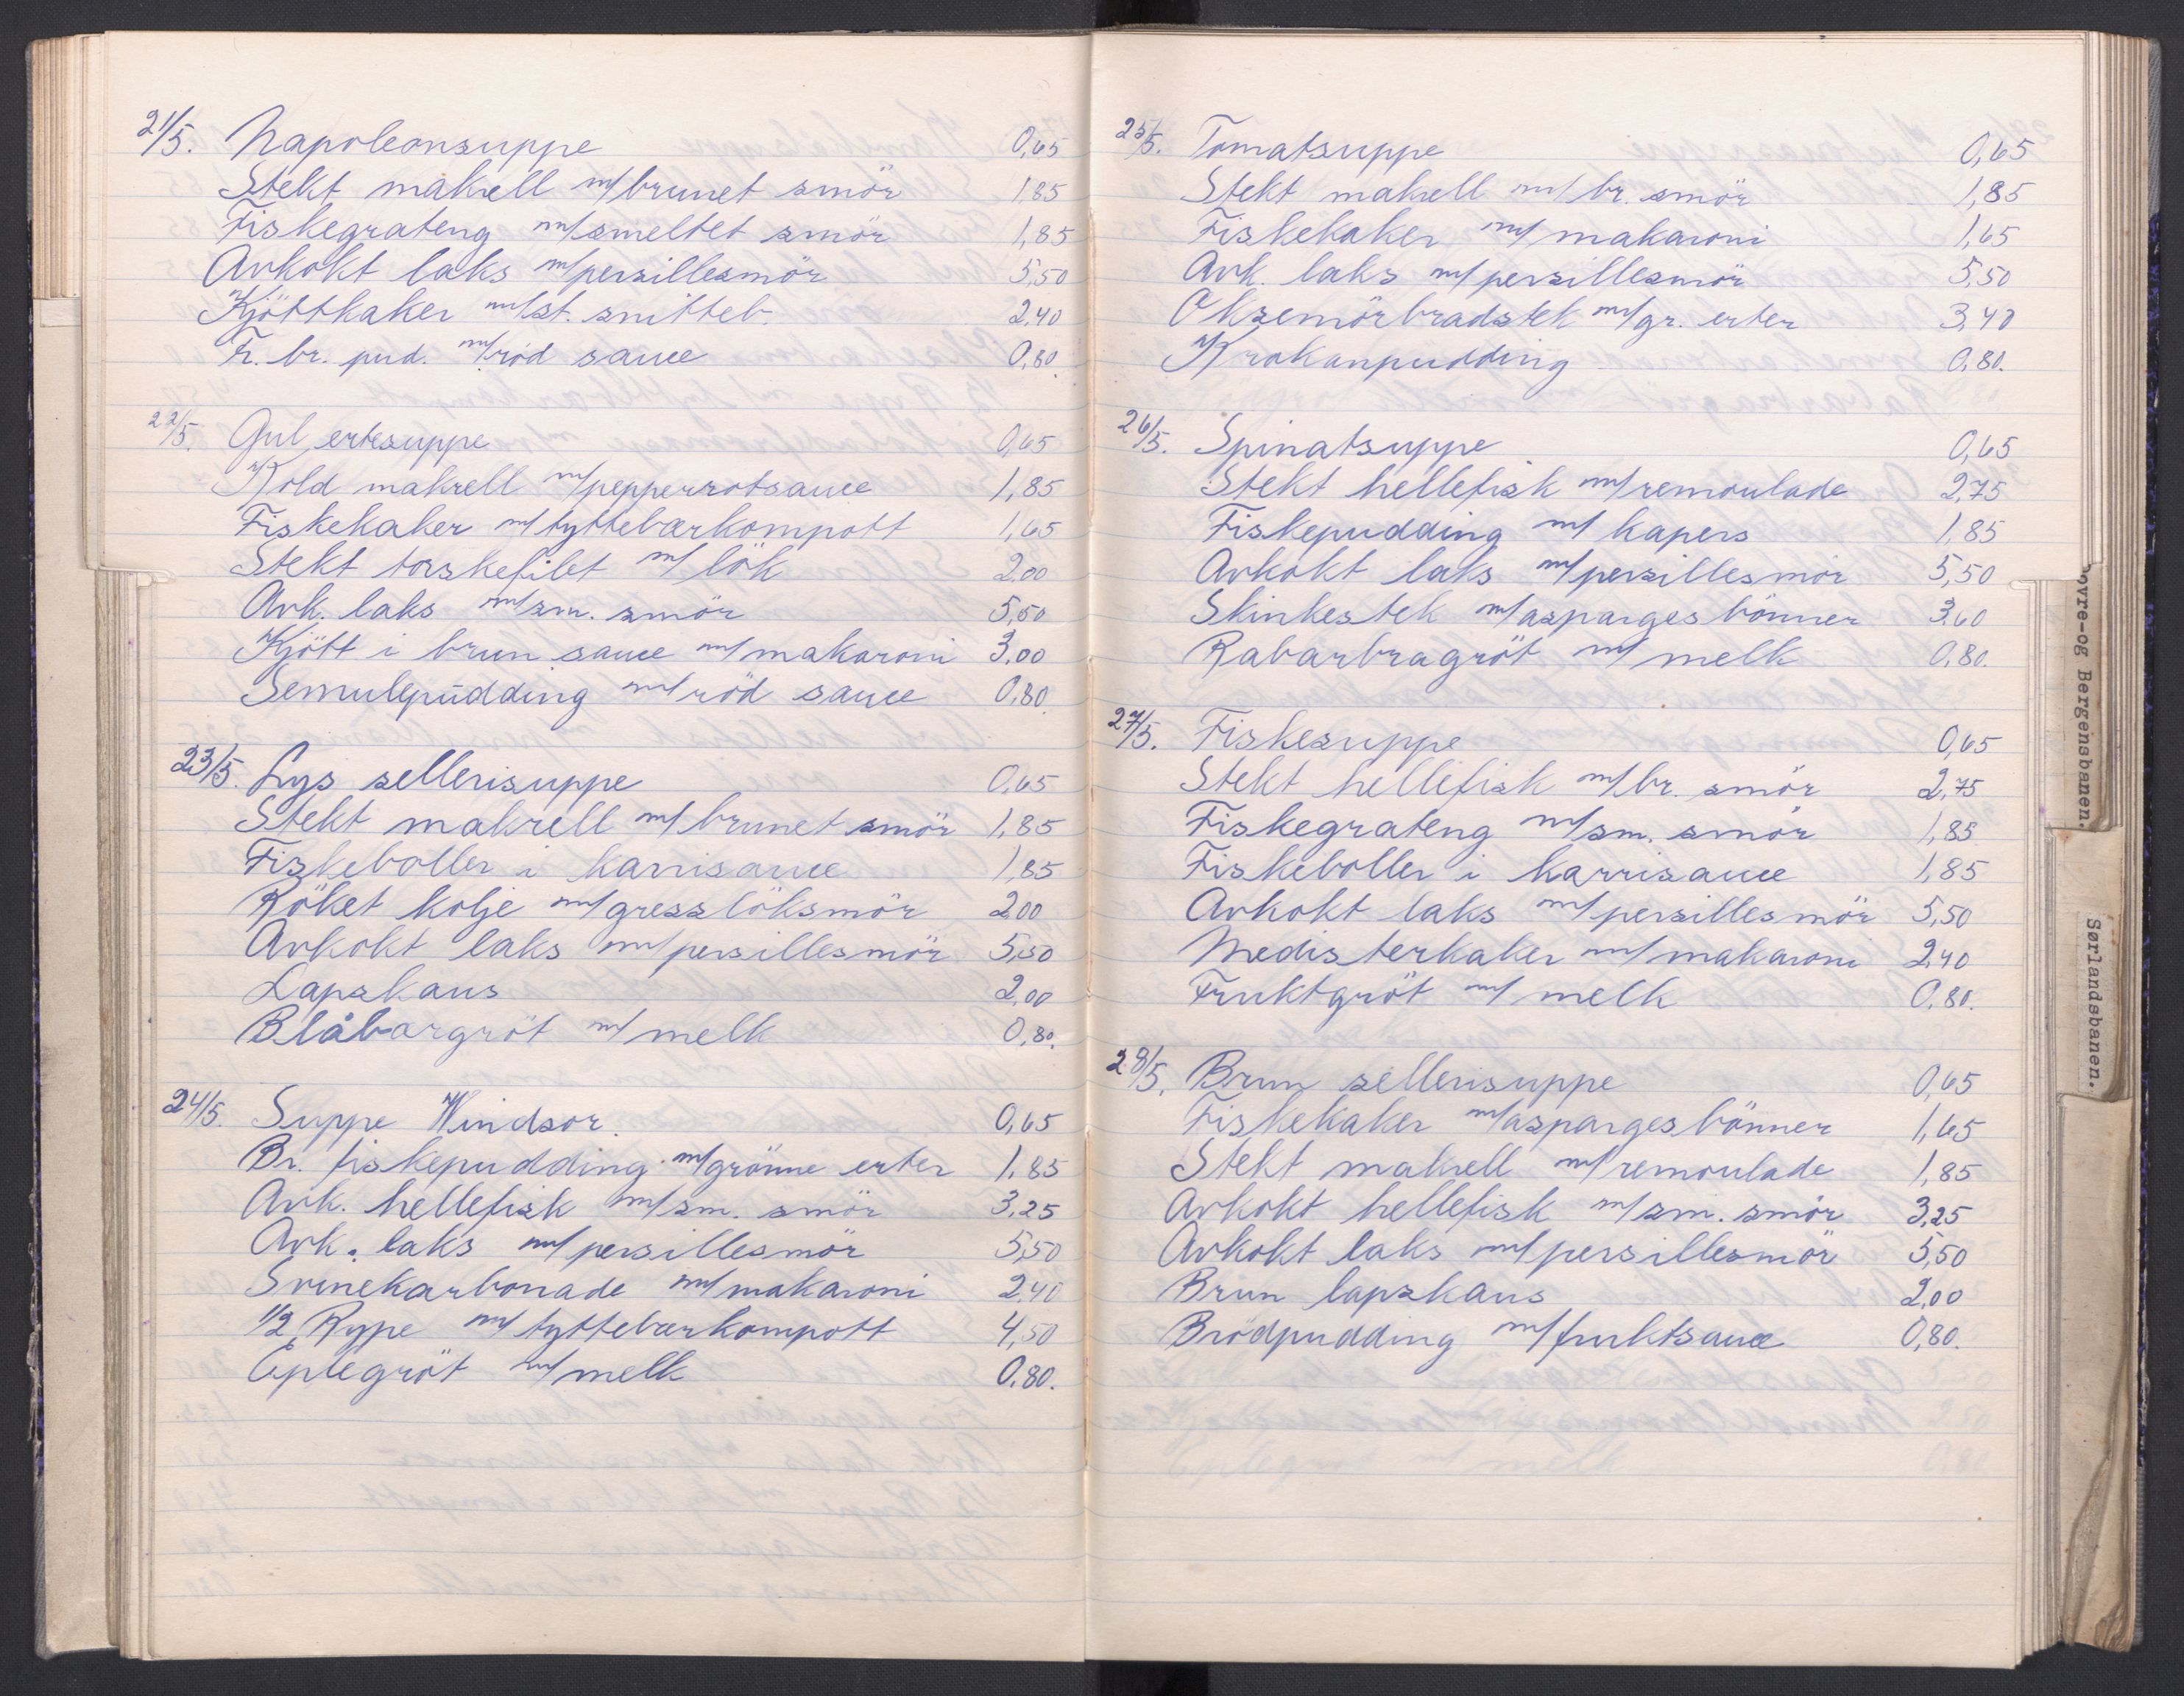 21/5. Napoleonsuppe 0,65
Stekt makrell m/brunet smör 1,85
Fiskegrateng m/smeltet smör 1,85
Avkokt laks m/persillesmör 5,50
Kjöttkaker m/st. snitteb. 2,40
Fr. br. pud. m/röd sauce 0,80.
22/5. Gul ertesuppe 0,65
Kold makrell m/pepperrotsauce 1,85
Fiskekaker m/tyttebærkompott 1,65
Stekt torskefilet m/ lök 2,00
Avk. laks m/sm. smör 5,50
Kjött i brun sauce m/makaroni 3,00
Semulepudding m/röd sauce 0,80.
23/5. Lys sellerisuppe 0,65
Stekt makrell m/ brunet smör 1,85
Fiskeboller i karrisauce 1,85
Röket kolje m/gresslöksmör 2,00
Avkokt laks m/persillesmör 5,50
Lapskaus 2,00
Blåbærgröt m/ melk 0,80.
24/5. Suppe Windsor. 0,65
Br. fiskepudding m/grönne erter 1,85
Avk. hellefisk m/sm. smör 3,25
Avk. laks m/persillesmör 5,50
Svinekarbonade m/makaroni 2,40
1/2 Rype m/ tyttebærkompott 4,50
Eplegröt m/melk 0,80.
25/5. Tomatsuppe 0,65
Stekt makrell m/ br. smör 1,85
Fiskekaker m/ makaroni 1,65
Avk. laks m/persillesmör 5,50
Oksemörbradstek m/gr. erter 3,40
Krokanpudding 0,80.
26/5. Spinatsuppe 0,65
Stekt hellefisk m/remoulade 2,75
Fiskepudding m/ kapers 1,85
Avkokt laks m/persillesmör 5,50
Skinkestek m/aspargesbönner 3,60
Rabarbragröt m/ melk 0,80.
27/5. Fiskesuppe 0,65
Stekt hellefisk m/br. smör 2,75
Fiskegrateng m/sm. smör 1,85
Fiskeboller i karrisauce 1,85
Avkokt laks m/persillesmör 5,50
Medisterkaker m/makaroni 2,40
Fruktgröt m/ melk 0,80.
28/5. Brun sellerisuppe 0,65
Fiskekaker m/aspargesbönner 1,65
Stekt makrell m/remoulade 1,85
Avkokt hellefisk m/sm. smör 3,25
Avkokt laks m/persillesmör 5,50
Brun lapskaus 2,00
Brödpudding m/fruktsauce 0,80.
ovre-og Bergensbanen.
Sørlandsbanen.